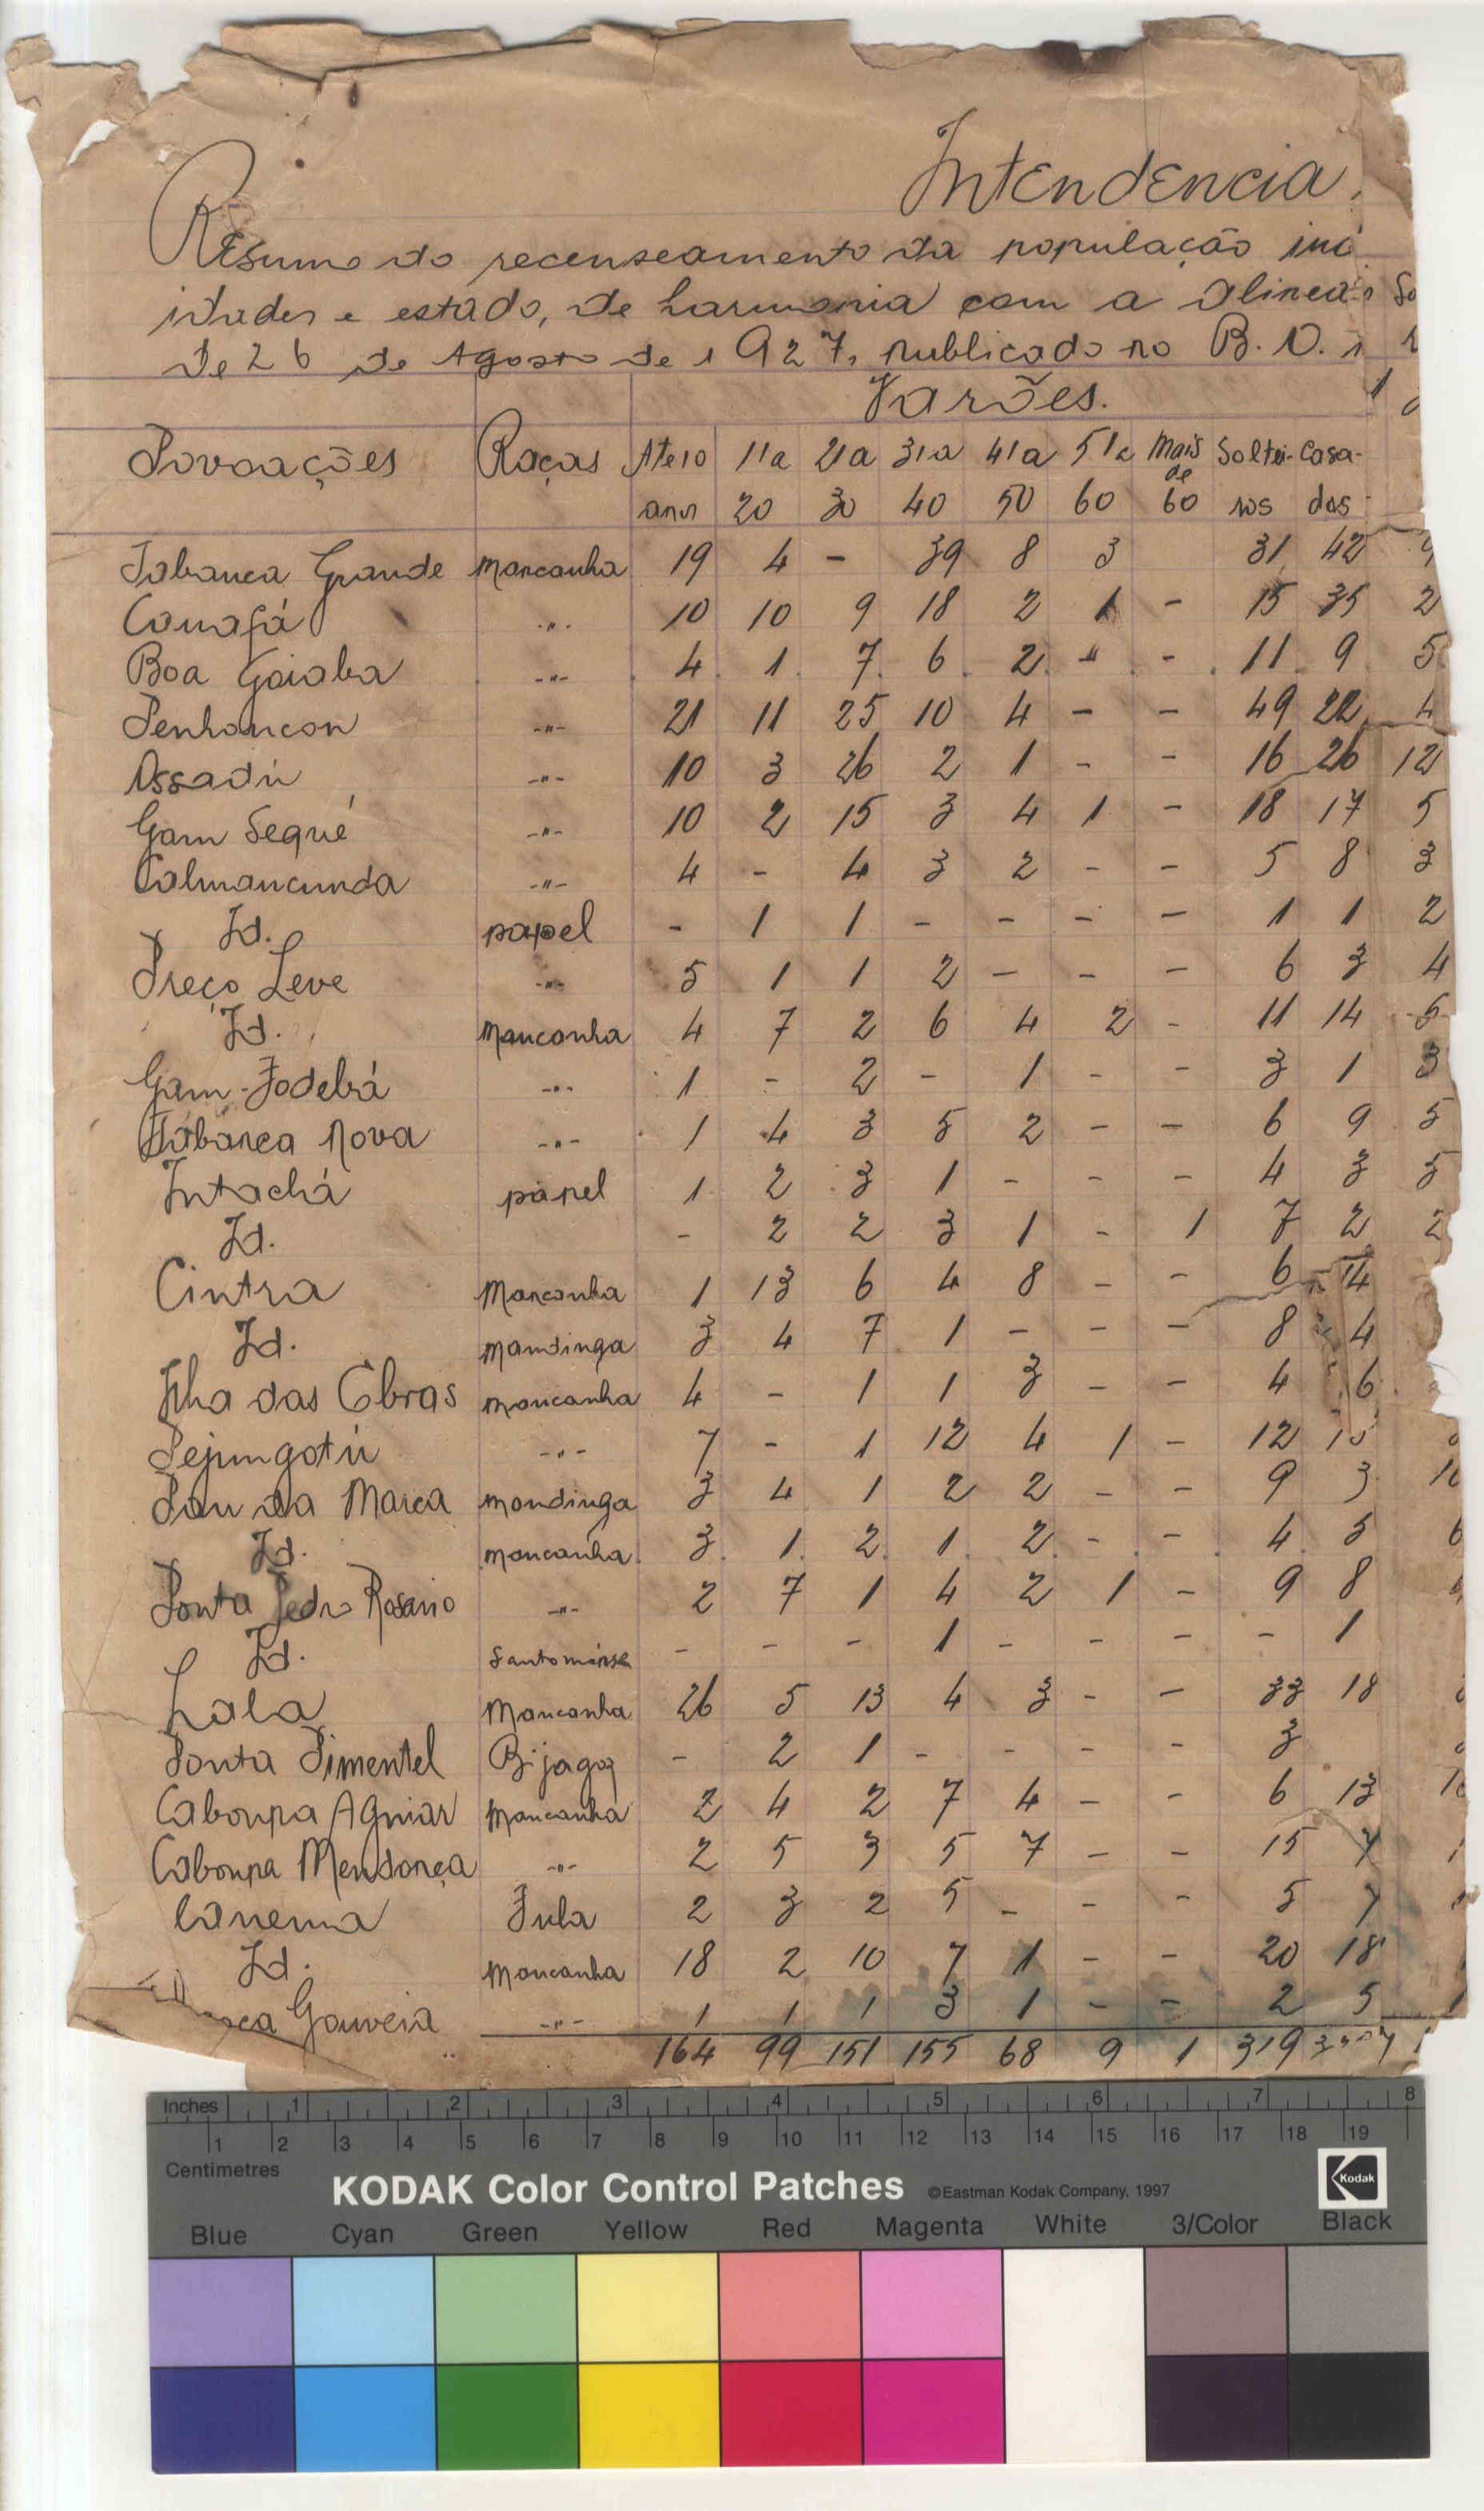 Intendencia
Resumo do recenseamento da população
idades e estado, de harmonia com a alinea
de 26 de Agosto de 1927, publicado no B. O.
Varões.
Povoações Raças Ate 10 anos 11 a 20 21 a 30 31 a 40 41 a 50 51 a 60 Mais de 60 Soltei-ros Casa-dos
Tabanca Grande Mancanha 19 4 - 39 8 3 31 42
Canafá -"- 10 10 9 18 2 1 - 15 35 2
Boa Goiaba -"- 4 1 7 6 2 - - 11 9 5
Penhancon -"- 21 11 25 10 4 - - 49 22 4
Assadú -"- 10 3 26 2 1 - - 16 26 12
Gam Sequé -"- 10 2 15 3 4 1 - 18 17 5
Calmancunda -"- 4 - 4 3 2 - - 5 8 3
Id. papel - 1 1 - - - - 1 1 2
Preço Leve -"- 5 1 1 2 - - - 6 3 4
Id. Mancanha 4 7 2 6 4 2 - 11 14 5
Gam-Fodebá -"- 1 - 2 - 1 - - 3 1 3
Tabanca Nova -"- 1 4 3 5 2 - - 6 9 5
Intachá papel 1 2 3 1 - - - 4 3 5
Id. - 2 2 3 1 - 1 7 2 2
Cintra Mancanha 1 13 6 4 8 - - 6 14
Id. Mandinga 3 4 7 1 - - - 8 4
Ilha das Cobras Mancanha 4 - 1 1 3 - - 4 6
Pejungotú -"- 7 - 1 12 4 1 - 12
Pau da Marca Mandinga 3 4 1 2 2 - - 9 3
Id. Mancanha 3 1 2 1 2 - - 4 5 6
Ponta Pedro Rosario -"- 2 7 1 4 2 1 - 9 8
Id. Santomense - - - 1 - - - - 1
Lala Mancanha 26 5 13 4 3 - - 33 18
Ponta Pimentel Bijagoz - 2 1 - - - - 3
Caboupa Aguiar Mancanha 2 4 2 7 4 - - 6 13
Caboupa Mendonça -"- 2 5 3 5 7 - - 15 7
Canema Fula 2 3 2 5 - - - 5 7
Id. Mancanha 18 2 10 7 1 - - 20 18
Gouveia -"- 1 1 1 3 1 - - 2 5
164 99 151 155 68 9 1 319
Inches 1 2 3 4 5 6 7 8
1 2 3 4 5 6 7 8 9 10 11 12 13 14 15 16 17 18 19
Centimetres
KODAK Color Control Patches ©Eastman Kodak Company, 1997 Kodak
Blue Cyan Green Yellow Red Magenta White 3/Color Black